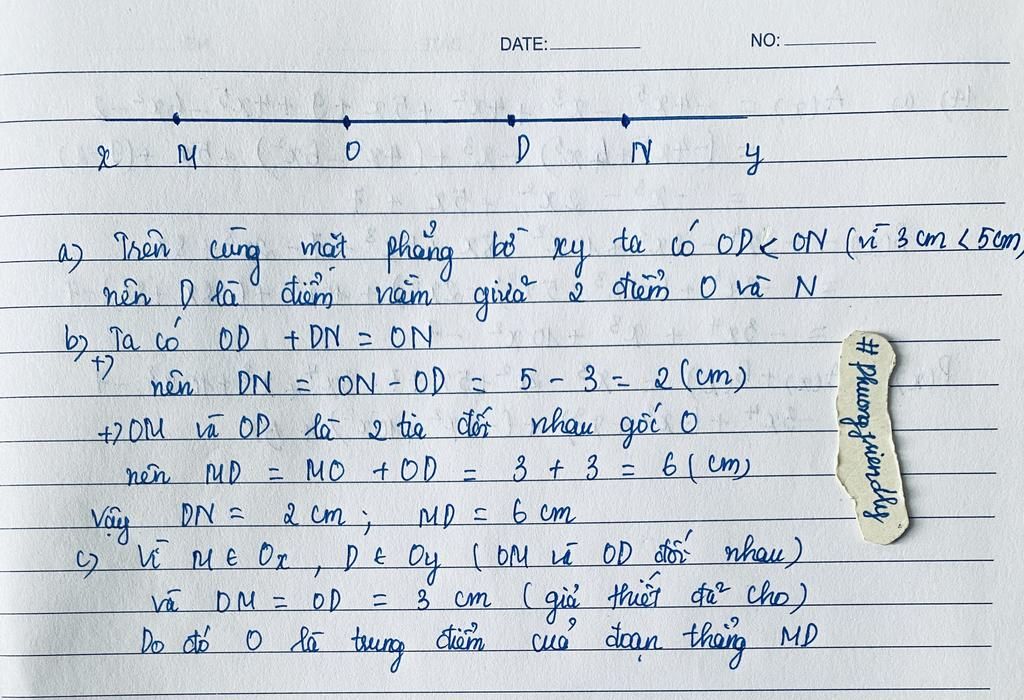 DATE: NO:
x M O D N y
a) Trên cùng mặt phẳng bờ xy ta có OD < ON (vì 3 cm < 5cm)
nên D là điểm nằm giữa 2 điểm O và N
b) Ta có OD + DN = ON
+) nên DN = ON - OD = 5 - 3 = 2 (cm)
+) OM và OD là 2 tia đối nhau gốc O
nên MD = MO + OD = 3 + 3 = 6 (cm)
Vậy DN = 2 cm ; MD = 6 cm
c) Vì M ∈ Ox , D ∈ Oy ( OM và OD đối nhau)
và OM = OD = 3 cm ( giả thiết đã cho)
Do đó O là trung điểm của đoạn thẳng MD
#phuongfriendly